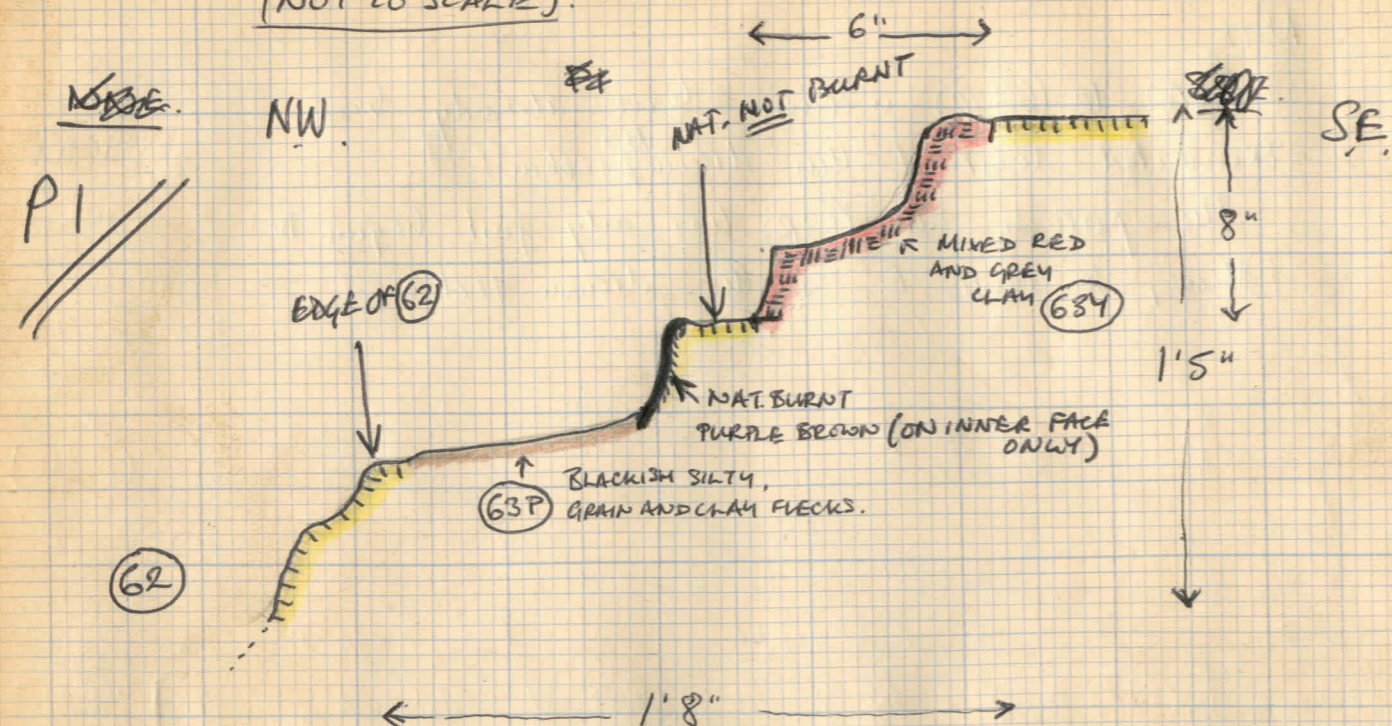 (NOT TO SCALE).
6"
NW.
NAT. NOT BURNT
SE.
P1
8"
MIXED RED
AND GREY
CLAY 63Y
EDGE OF 62
1'5"
NAT. BURNT
PURPLE BROWN (ON INNER FACE
ONLY)
BLACKISH SILTY,
63P GRAIN AND CLAY FLECKS.
62
1'8"